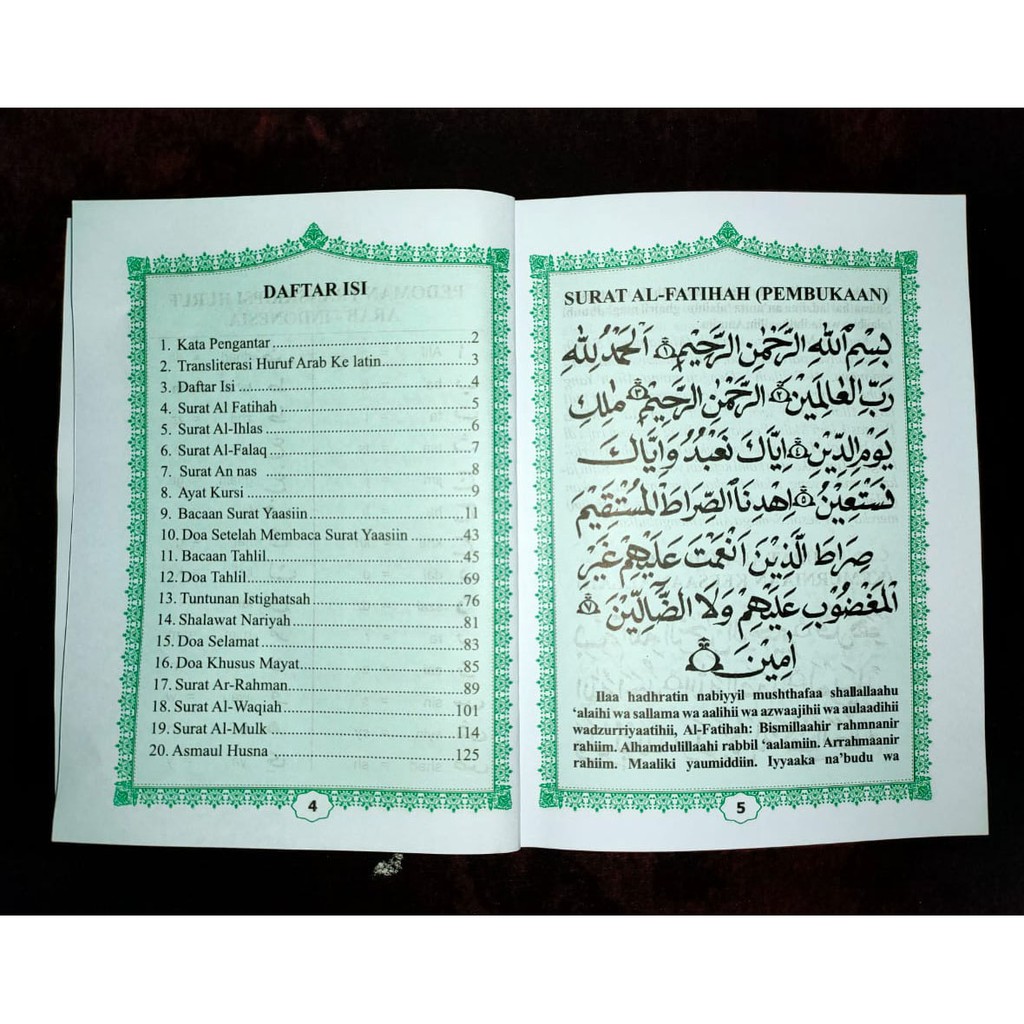 DAFTAR ISI
1. Kata Pengantar ..... 2
2. Transliterasi Huruf Arab Ke latin ..... 3
3. Daftar Isi ..... 4
4. Surat Al Fatihah ..... 5
5. Surat Al-Ihlas ..... 6
6. Surat Al-Falaq ..... 7
7. Surat An nas ..... 8
8. Ayat Kursi ..... 9
9. Bacaan Surat Yaasiin ..... 11
10. Doa Setelah Membaca Surat Yaasiin ..... 43
11. Bacaan Tahlil ..... 45
12. Doa Tahlil ..... 69
13. Tuntunan Istighatsah ..... 76
14. Shalawat Nariyah ..... 81
15. Doa Selamat ..... 83
16. Doa Khusus Mayat ..... 85
17. Surat Ar-Rahman ..... 89
18. Surat Al-Waqiah ..... 101
19. Surat Al-Mulk ..... 114
20. Asmaul Husna ..... 125
4
SURAT AL-FATIHAH (PEMBUKAAN)
بِسْمِ اللهِ الرَّحْمٰنِ الرَّحِيْمِ ١ اَلْحَمْدُ لِلّٰهِ
رَبِّ الْعَالَمِيْنَ ٢ الرَّحْمٰنِ الرَّحِيْمِ ٣ مٰلِكِ
يَوْمِ الدِّيْنِ ٤ اِيَّاكَ نَعْبُدُ وَاِيَّاكَ
نَسْتَعِيْنُ ٥ اِهْدِنَا الصِّرَاطَ الْمُسْتَقِيْمَ
صِرَاطَ الَّذِيْنَ اَنْعَمْتَ عَلَيْهِمْ غَيْرِ
الْمَغْضُوْبِ عَلَيْهِمْ وَلَا الضَّالِّيْنَ ٧
اٰمِيْنَ
Ilaa hadhratin nabiyyil mushthafaa shallallaahu
‘alaihi wa sallama wa aalihii wa azwaajihii wa aulaadihii
wadzurriyaatihii, Al-Fatihah: Bismillaahir rahmnanir
rahiim. Alhamdulillaahi rabbil ‘aalamiin. Arrahmaanir
rahiim. Maaliki yaumiddiin. Iyyaaka na’budu wa
5